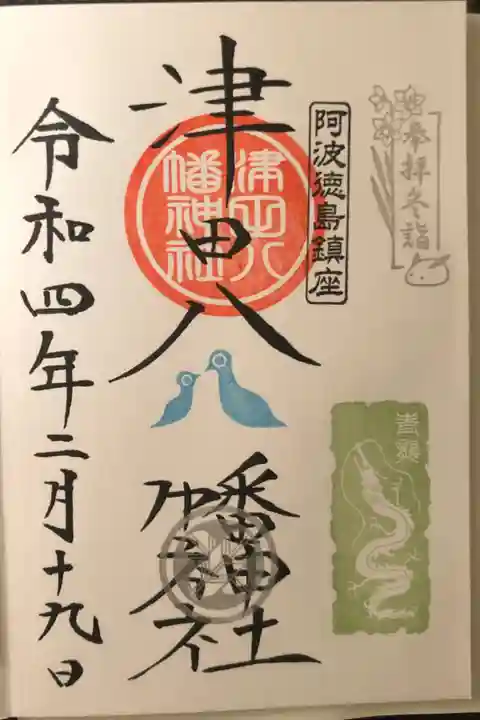 奉拝冬詣
阿波徳島鎮座
津田八幡神社
津田八幡神社
青龍
令和四年二月十九日